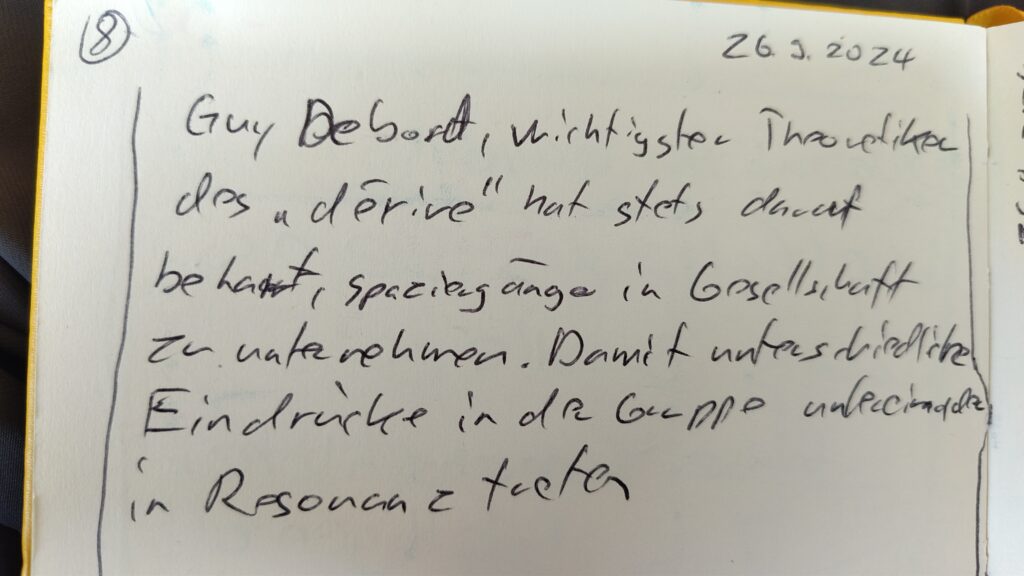 8
26.9.2024
Guy Debord, wichtigster Theoretiker
des „dērive" hat stets darauf
beharrt, Spaziergänge in Gesellschaft
zu unternehmen. Damit unterschiedliche
Eindrücke in der Gruppe untereinander
in Resonanz treten